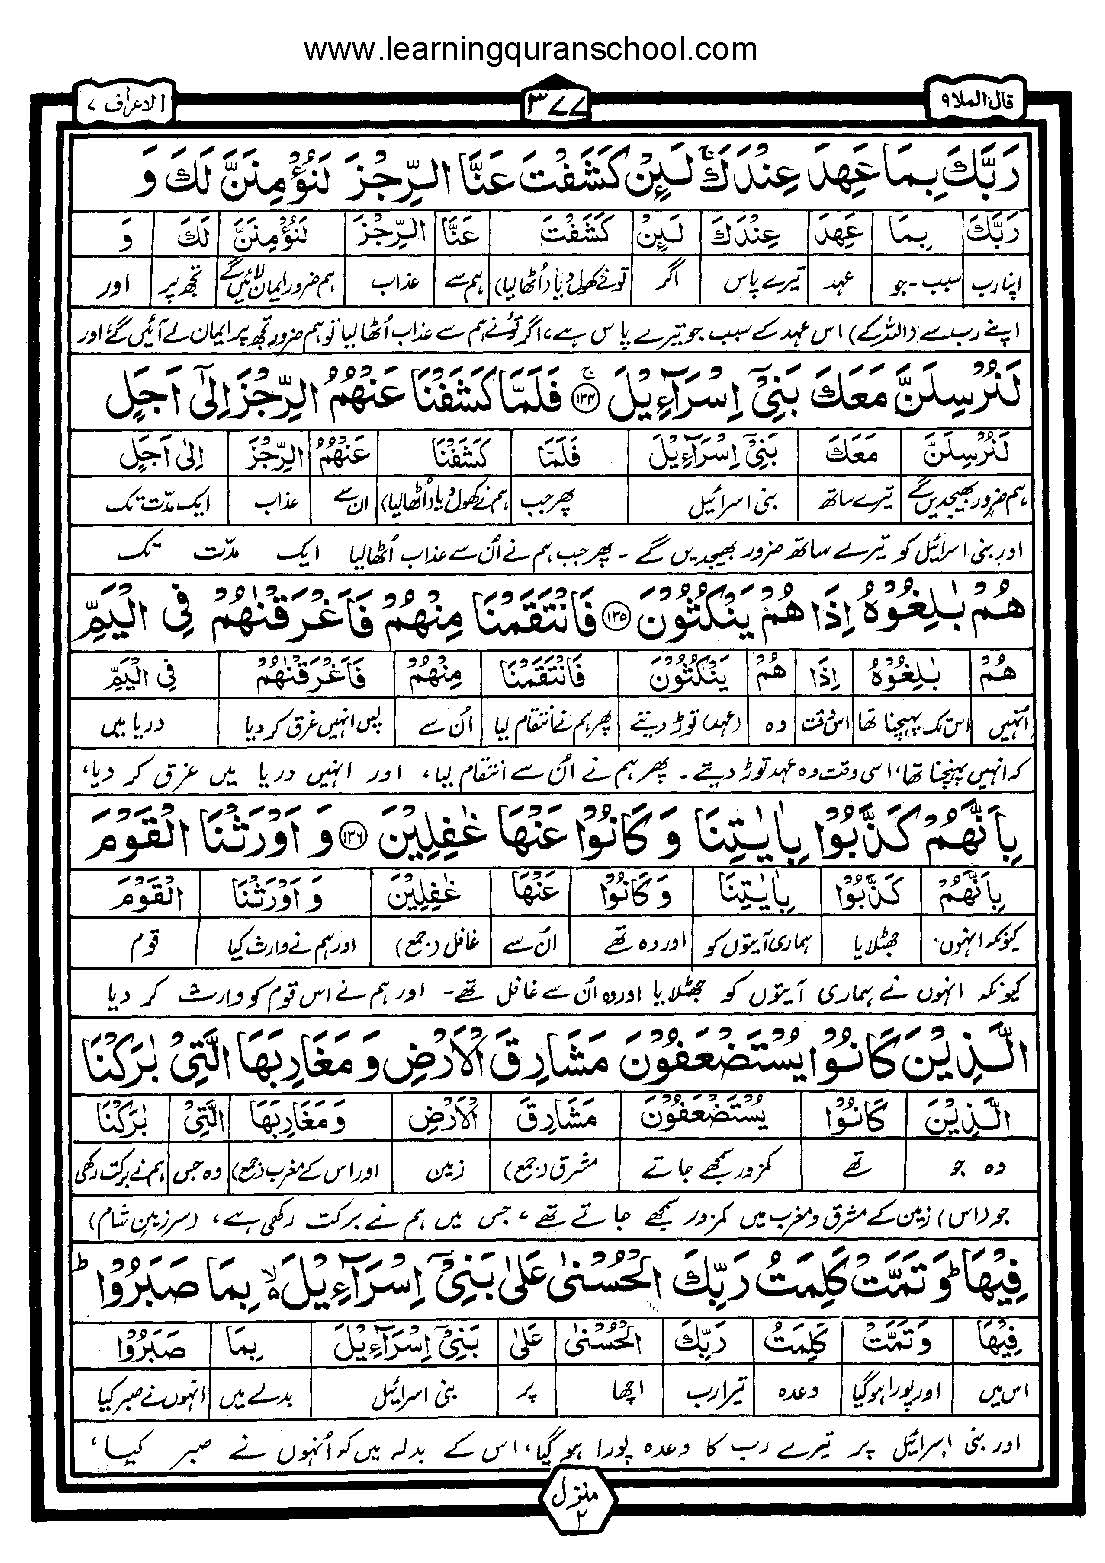 www.learningquranschool.com
قال الملا ٩
٣٧٧
الاعراف ٧
رَبَّكَ بِمَا عَهِدَ عِنْدَكَ ۚ لَئِنْ كَشَفْتَ عَنَّا الرِّجْزَ لَنُؤْمِنَنَّ لَكَ وَ
رَبَّكَ بِمَا عَهِدَ عِنْدَكَ لَئِنْ كَشَفْتَ عَنَّا الرِّجْزَ لَنُؤْمِنَنَّ لَكَ وَ
اپنا رب سبب - جو عہد تیرے پاس اگر تونے کھول دیا (اُٹھالیا) ہم سے عذاب ہم ضرور ایمان لائیں گے تجھ پر اور
اپنے رب سے (اللہ کے) اس عہد کے سبب جو تیرے پاس ہے، اگر تونے ہم سے عذاب اُٹھا لیا تو ہم ضرور تجھ پر ایمان لے آئیں گے اور
لَنُرْسِلَنَّ مَعَكَ بَنِيْٓ اِسْرَآءِيْلَ ۚ ﴿۱۳۴﴾ فَلَمَّا كَشَفْنَا عَنْهُمُ الرِّجْزَ اِلٰٓى اَجَلٍ
لَنُرْسِلَنَّ مَعَكَ بَنِيْٓ اِسْرَآءِيْلَ فَلَمَّا كَشَفْنَا عَنْهُمُ الرِّجْزَ اِلٰٓى اَجَلٍ
ہم ضرور بھیجدیں گے تیرے ساتھ بنی اسرائیل پھر جب ہم نے کھول دیا (اُٹھالیا) ان سے عذاب ایک مدت تک
اور بنی اسرائیل کو تیرے ساتھ ضرور بھیجدیں گے ۔ پھر جب ہم نے اُن سے عذاب اُٹھالیا ایک مدّت تک
هُمْ بٰلِغُوْهُ اِذَا هُمْ يَنْكُثُوْنَ ﴿۱۳۵﴾ فَانْتَقَمْنَا مِنْهُمْ فَاَغْرَقْنٰهُمْ فِي الْيَمِّ
هُمْ بٰلِغُوْهُ اِذَا هُمْ يَنْكُثُوْنَ فَانْتَقَمْنَا مِنْهُمْ فَاَغْرَقْنٰهُمْ فِي الْيَمِّ
انہیں اس تک پہنچنا تھا اس وقت وہ (عہد) توڑ دیتے پھر ہم نے انتقام لیا اُن سے پس انہیں غرق کر دیا دریا میں
کہ انہیں پہنچنا تھا، اسی وقت وہ عہد توڑ دیتے ۔ پھر ہم نے اُن سے انتقام لیا، اور انہیں دریا میں غرق کر دیا،
بِاَنَّهُمْ كَذَّبُوْا بِاٰيٰتِنَا وَ كَانُوْا عَنْهَا غٰفِلِيْنَ ﴿۱۳۶﴾ وَ اَوْرَثْنَا الْقَوْمَ
بِاَنَّهُمْ كَذَّبُوْا بِاٰيٰتِنَا وَ كَانُوْا عَنْهَا غٰفِلِيْنَ وَ اَوْرَثْنَا الْقَوْمَ
کیونکہ انہوں جھٹلایا ہماری آیتوں کو اور وہ تھے اُن سے غافل (جمع) اور ہم نے وارث کیا قوم
کیونکہ انہوں نے ہماری آیتوں کو جھٹلایا اور وہ اُن سے غافل تھے ۔ اور ہم نے اس قوم کو وارث کر دیا
الَّذِيْنَ كَانُوْا يُسْتَضْعَفُوْنَ مَشَارِقَ الْاَرْضِ وَ مَغَارِبَهَا الَّتِيْ بٰرَكْنَا
الَّذِيْنَ كَانُوْا يُسْتَضْعَفُوْنَ مَشَارِقَ الْاَرْضِ وَ مَغَارِبَهَا الَّتِيْ بٰرَكْنَا
وہ جو تھے کمزور سمجھے جاتے مشرق (جمع) زمین اور اس کے مغرب (جمع) وہ جس ہم نے برکت رکھی
جو (اس) زمین کے مشرق و مغرب میں کمزور سمجھے جاتے تھے، جس میں ہم نے برکت رکھی ہے، (سرزمین شام)
فِيْهَا ؕ وَ تَمَّتْ كَلِمَتُ رَبِّكَ الْحُسْنٰى عَلٰى بَنِيْٓ اِسْرَآءِيْلَ ۙ بِمَا صَبَرُوْا ؕ
فِيْهَا وَ تَمَّتْ كَلِمَتُ رَبِّكَ الْحُسْنٰى عَلٰى بَنِيْٓ اِسْرَآءِيْلَ بِمَا صَبَرُوْا
اس میں اور پورا ہوگیا وعدہ تیرا رب اچھا پر بنی اسرائیل بدلے میں انہوں نے صبر کیا
اور بنی اسرائیل پر تیرے رب کا وعدہ پورا ہو گیا، اس کے بدلہ میں کہ اُنہوں نے صبر کیا،
منزل ۲